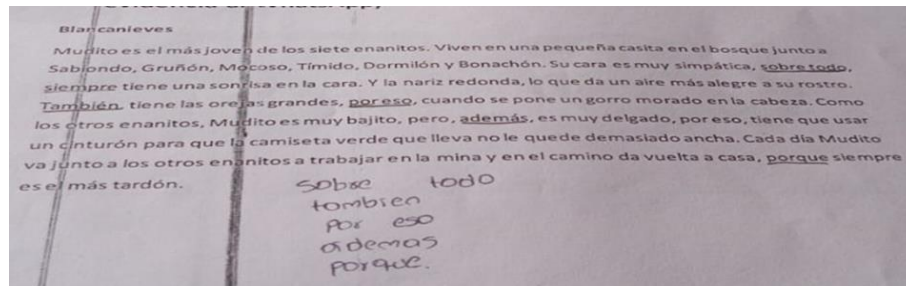 Blancanieves
Mudito es el más joven de los siete enanitos. Viven en una pequeña casita en el bosque junto a
Sabiondo, Gruñón, Mocoso, Tímido, Dormilón y Bonachón. Su cara es muy simpática, sobre todo,
siempre tiene una sonrisa en la cara. Y la nariz redonda, lo que da un aire más alegre a su rostro.
También, tiene las orejas grandes, por eso, cuando se pone un gorro morado en la cabeza. Como
los otros enanitos, Mudito es muy bajito, pero, además, es muy delgado, por eso, tiene que usar
un cinturón para que la camiseta verde que lleva no le quede demasiado ancha. Cada día Mudito
va junto a los otros enanitos a trabajar en la mina y en el camino da vuelta a casa, porque siempre
es el más tardón.
sobre todo
tambien
por eso
ademas
porque.